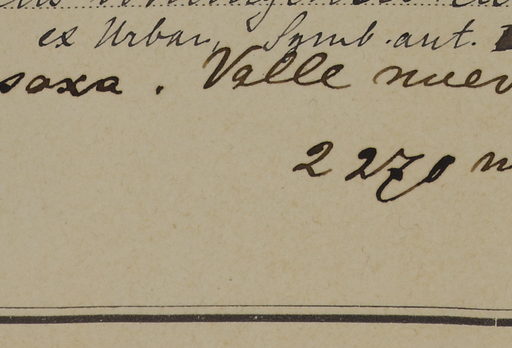 ex Urban, Symb. ant.
saxa. Valle nuev
2270 m